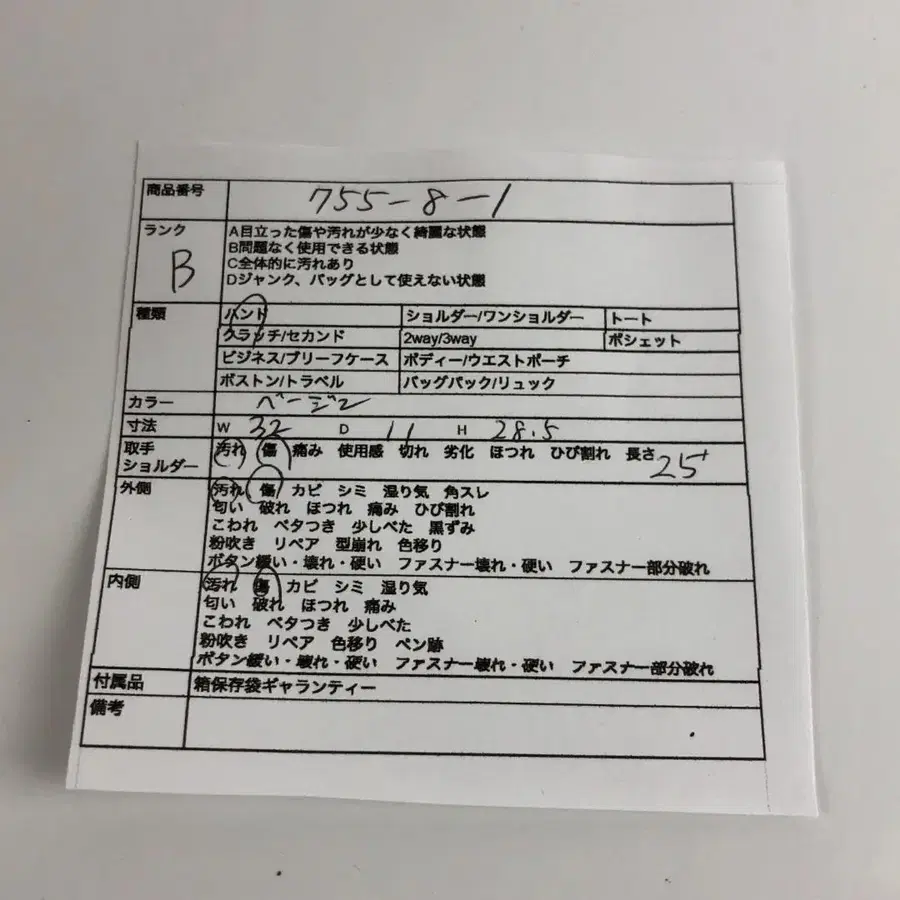 商品番号 755-8-1
ランク B
A目立った傷や汚れが少なく綺麗な状態
B問題なく使用できる状態
C全体的に汚れあり
Dジャンク、バッグとして使えない状態
種類 ハンド ショルダー/ワンショルダー トート
クラッチ/セカンド 2way/3way ポシェット
ビジネス/ブリーフケース ボディー/ウエストポーチ
ボストン/トラベル バッグパック/リュック
カラー ベージン
寸法 W 32 D 11 H 28.5
取手
ショルダー
汚れ 傷 痛み 使用感 切れ 劣化 ほつれ ひび割れ 長さ 25
外側 汚れ 傷 カビ シミ 湿り気 角スレ
匂い 破れ ほつれ 痛み ひび割れ
こわれ ベタつき 少しべた 黒ずみ
粉吹き リペア 型崩れ 色移り
ボタン緩い・壊れ・硬い ファスナー壊れ・硬い ファスナー部分破れ
内側 汚れ 傷 カビ シミ 湿り気
匂い 破れ ほつれ 痛み
こわれ ベタつき 少しべた
粉吹き リペア 色移り ペン跡
ボタン緩い・壊れ・硬い ファスナー壊れ・硬い ファスナー部分破れ
付属品 箱保存袋ギャランティー
備考